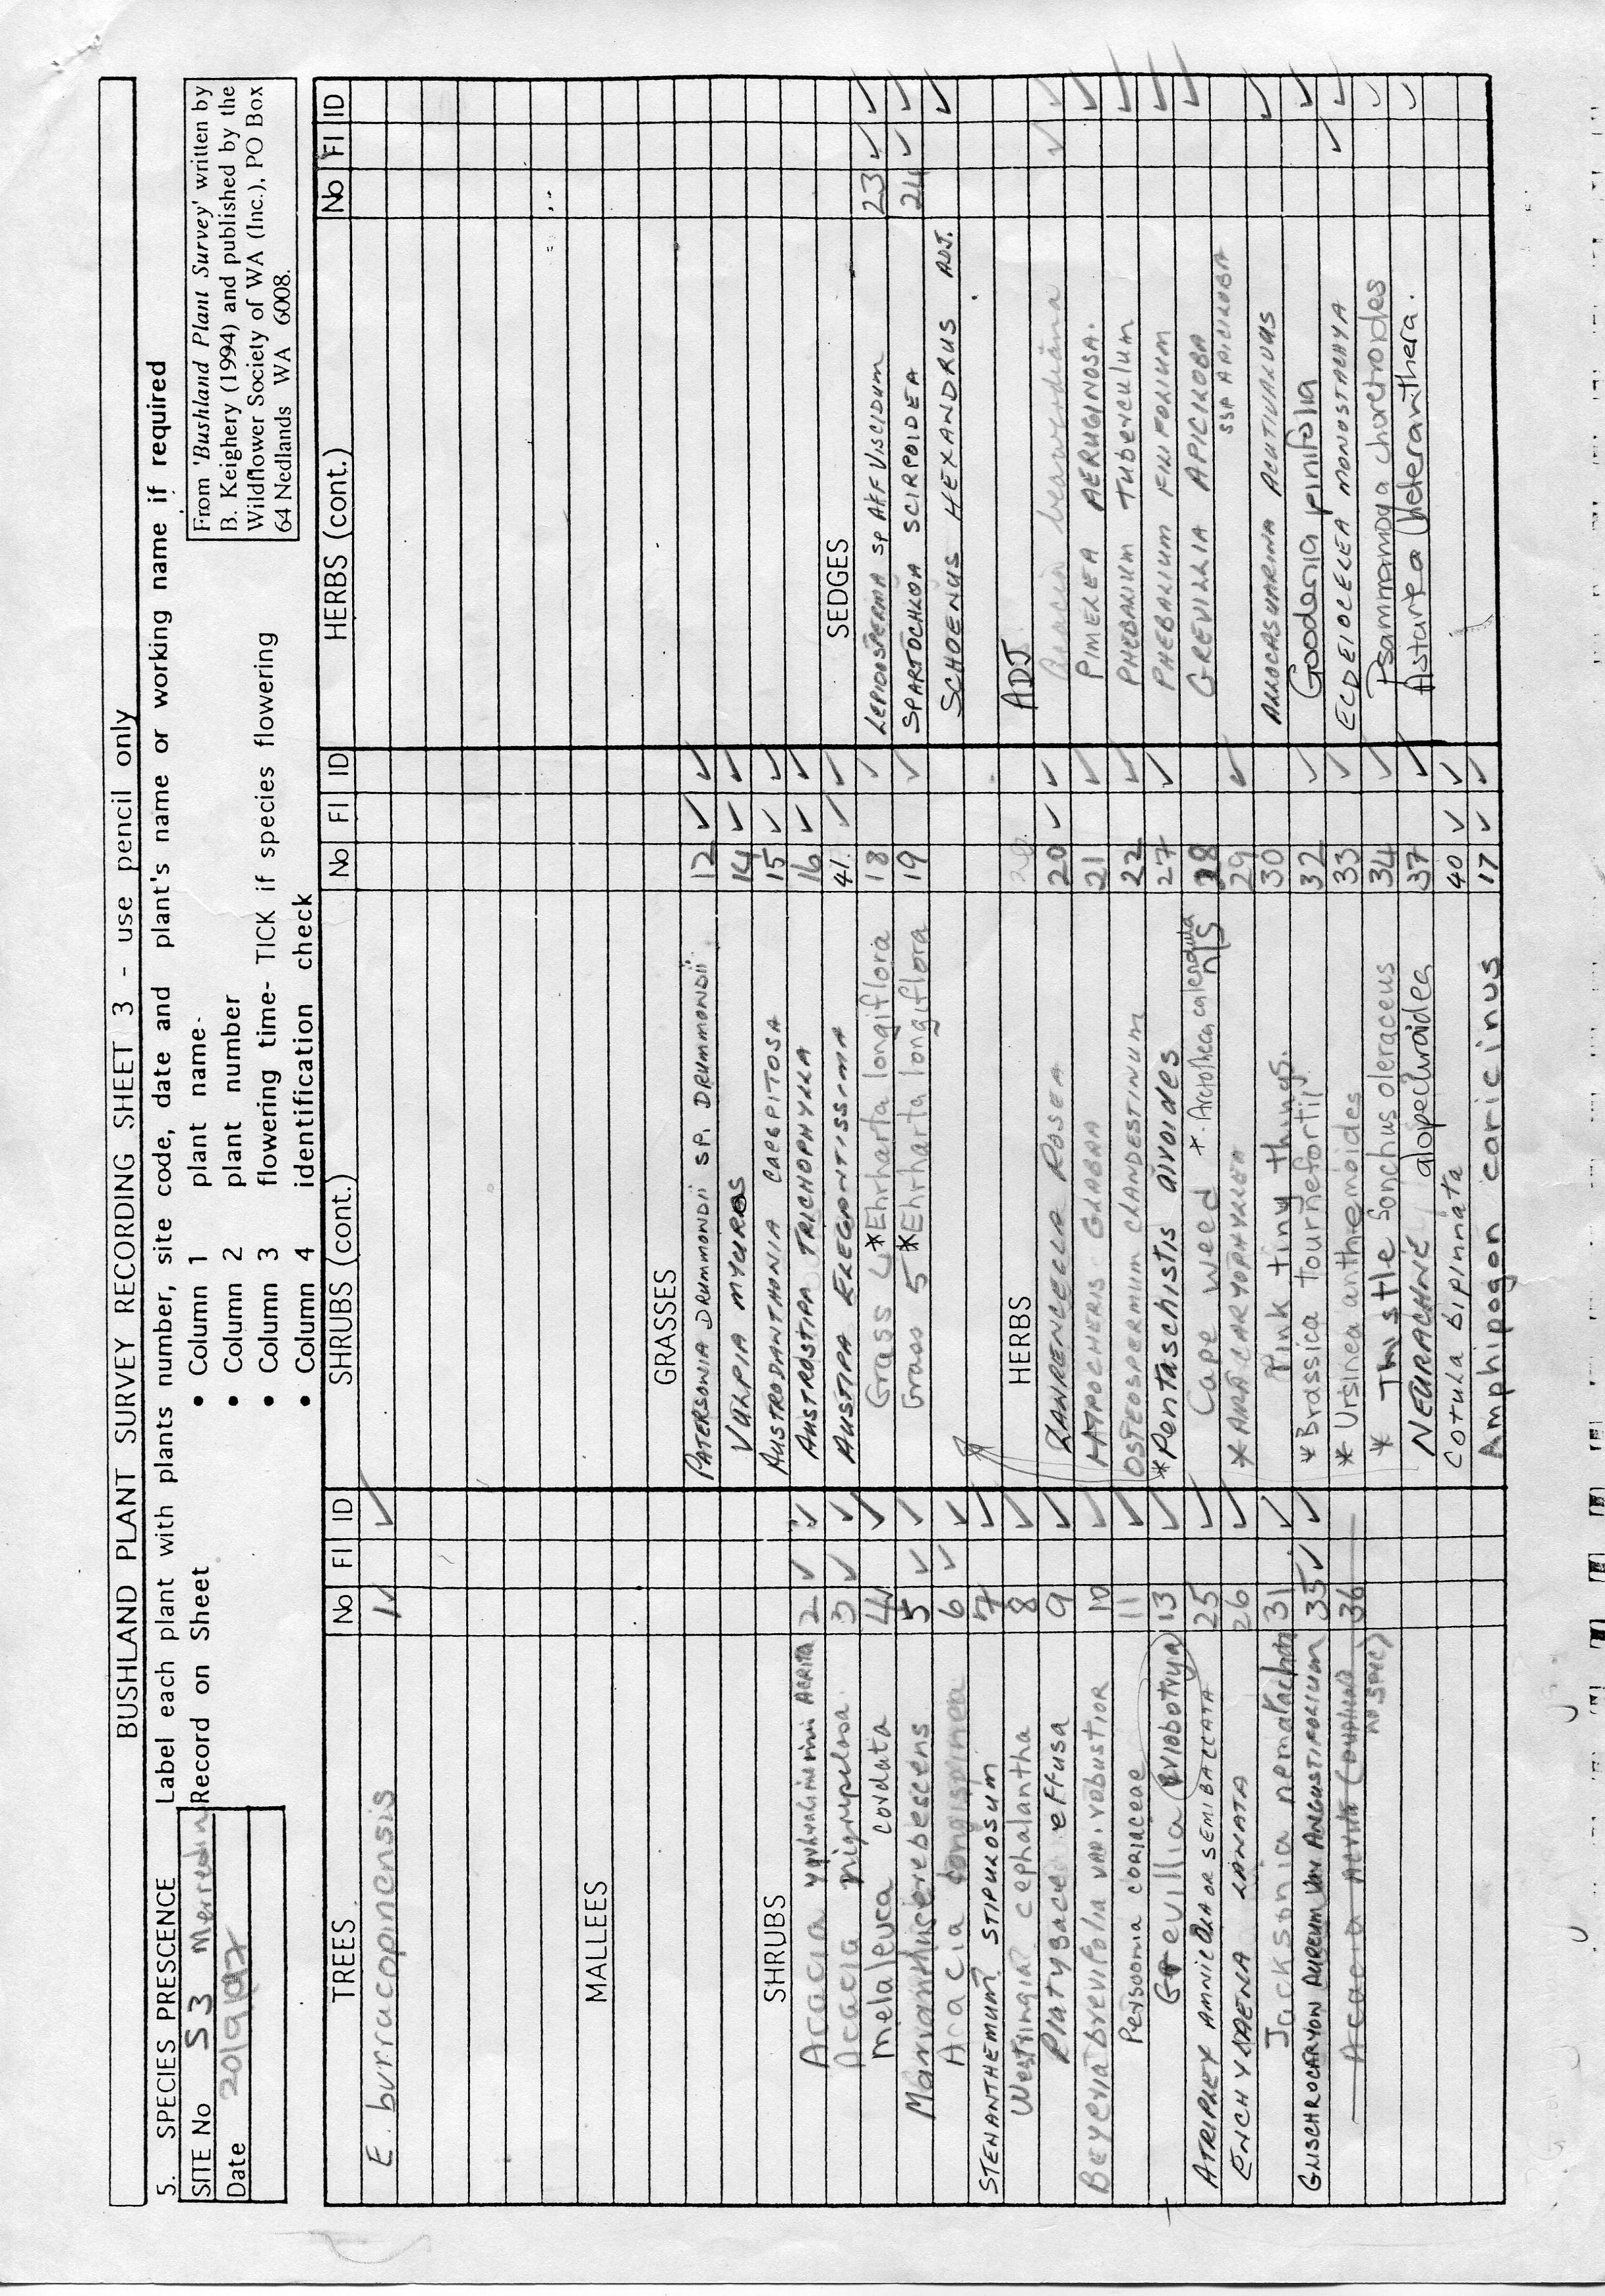 BUSHLAND PLANT SURVEY RECORDING SHEET 3 - use pencil only
5. SPECIES PRESENCE Label each plant with plants number, site code, date and plant's name or working name if required
SITE No S3 Merredin Record on Sheet
Date 20/9/97
• Column 1 plant name
• Column 2 plant number
• Column 3 flowering time- TICK if species flowering
• Column 4 identification check
From 'Bushland Plant Survey' written by
B. Keighery (1994) and published by the
Wildflower Society of WA (Inc.), PO Box
64 Nedlands WA 6008.
TREES No Fl ID
E. burracopinensis 1 ✓
MALLEES
SHRUBS
Acacia 2 ✓ ✓
Acacia nigripilosa 3 ✓ ✓
melaleuca cordata 4 ✓
erebescens 5 ✓ ✓
Acacia longispinea 6 ✓ ✓
STENANTHEMUM STIPULOSUM 7 ✓
Westringia cephalantha 8 ✓
Platysace effusa 9 ✓
BEYERIA brevifolia VAR. robustior 10 ✓
Persoonia CORIACEAE 11 ✓
Grevillia eriobotrya 13 ✓
ATRIPLEX AMNICOLA OR SEMIBACCATA 25 ✓
ENCHYLAENA LANATA 26 ✓
Jacksonia nematoclada 31 ✓
GLISCHROCARYON AUREUM VAR ANGUSTIFOLIUM 35 ✓ ✓
Acacia 36
NO SPEC)
SHRUBS (cont.) No Fl ID
GRASSES
PATERSONIA DRUMMONDII SP. DRUMMONDII 12 ✓ ✓
VULPIA MYUROS 14 ✓ ✓
AUSTRODANTHONIA CAESPITOSA 15 ✓ ✓
AUSTROSTIPA TRICHOPHYLLA 16 ✓ ✓
AUSTIPA ELEGANTISSIMA 41. ✓ ✓
Grass 4 *Ehrharta longiflora 18 ✓
Grass 5 *Ehrharta longiflora 19 ✓
HERBS
LAWRENCELLA ROSEA 20 ✓ ✓
HYPOCHERIS GLABRA 21 ✓
OSTEOSPERMUM CLANDESTINUM 22 ✓
*Pentaschistis airoides 27 ✓
Cape weed *Arctotheca calendula n/s 28
*AIRA CARYOPHYLLEA 29 ✓
Pink tiny things. 30
*Brassica tournefortii 32 ✓
* Ursinea anthemoides 33 ✓
* Thistle Sonchus oleraceus 34 ✓
NEURACHNE alopecuroidea 37 ✓
COTULA BIPINNATA 40 ✓ ✓
Amphipogon caricinus 17 ✓ ✓
HERBS (cont.) No Fl ID
SEDGES
LEPIDOSPERMA SP AFF VISCIDUM 23 ✓ ✓
SPARTOCHLOA SCIRPOIDEA 24 ✓ ✓
SCHOENUS HEXANDRUS ADJ. ✓
ADJ.
Acacia beauverdiana ✓ ✓
PIMELEA AERUGINOSA. ✓
PHEBALIUM Tuberculum ✓
PHEBALIUM FILIFOLIUM ✓
GREVILLIA APICILOBA ✓
SSP APICILOBA
ALLOCASUARINA ACUTIVALVIS ✓
Goodenia pinifolia ✓
ECDEIOCELEA MONOSTACHYA ✓ ✓
Psammomoya choretroides ✓
Astartea heteranthera. ✓